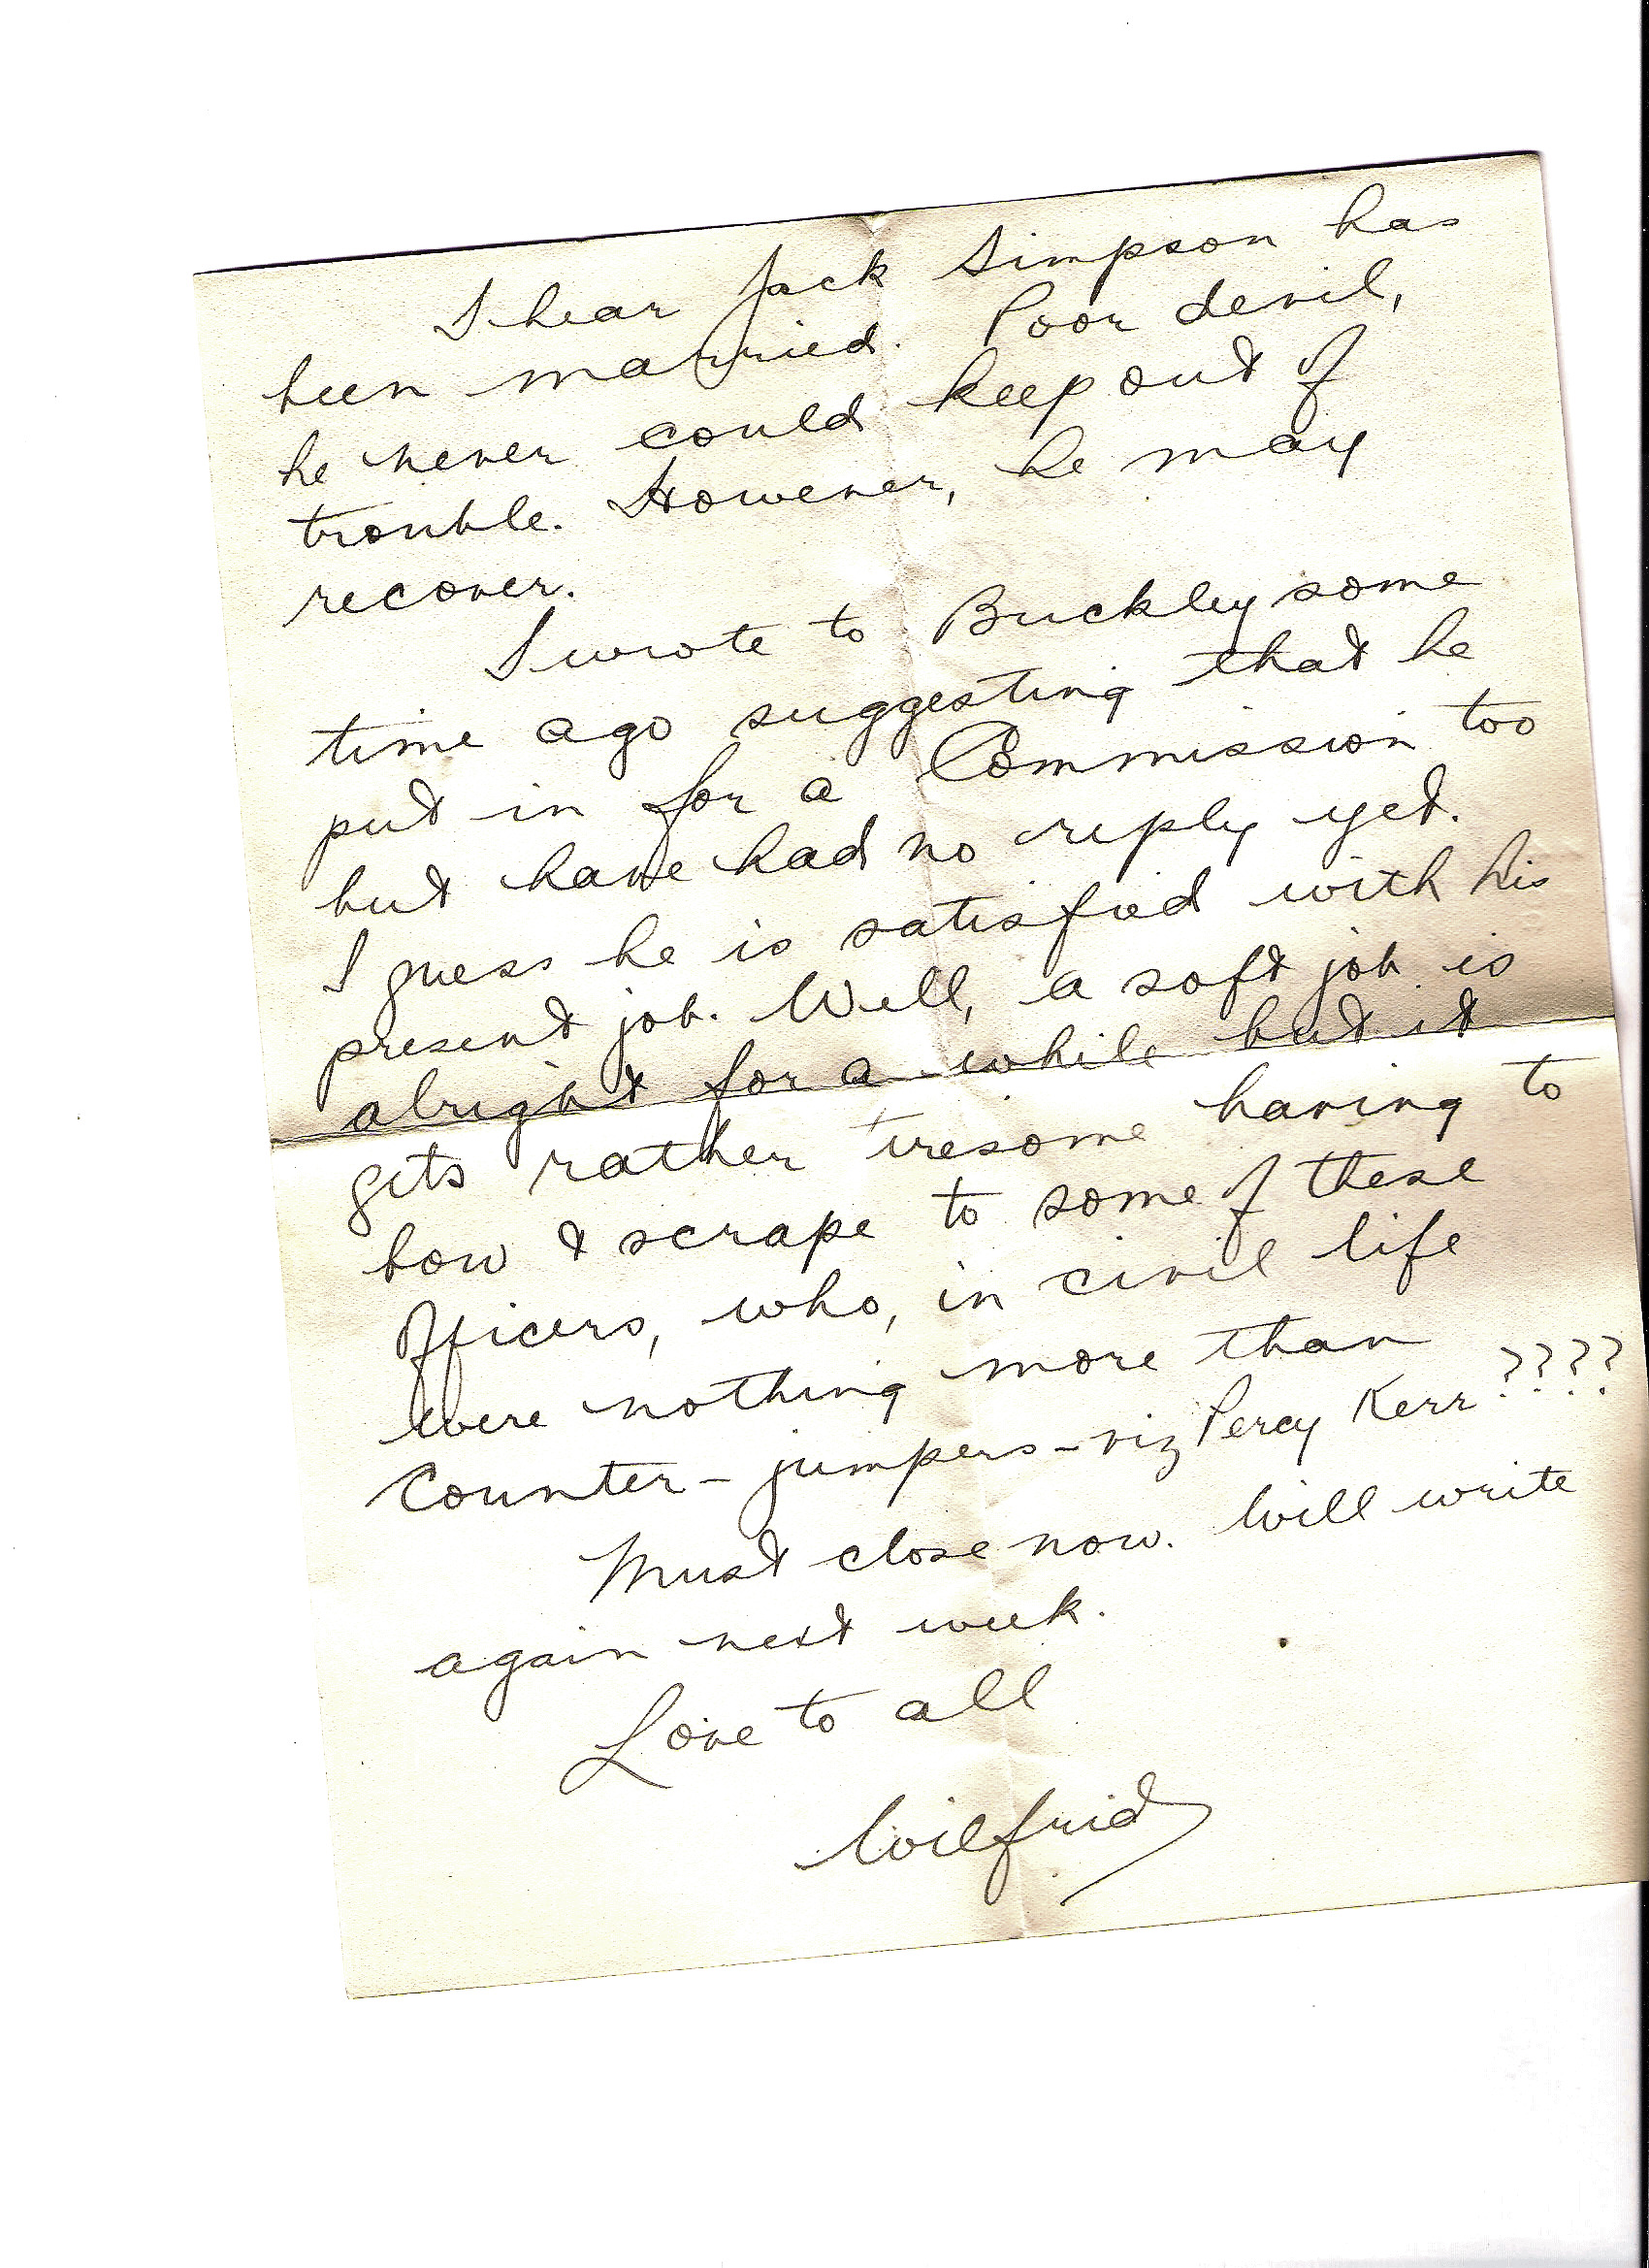 I hear Jack Simpson has
been married. Poor devil,
he never could keep out of
trouble. However, he may
recover.
I wrote to Buckley some
time ago suggesting that he
put in for a Commission too
but have had no reply yet.
I guess he is satisfied with his
present job. Well, a soft job is
alright for a while but it
gets rather tiresome having to
bow & scrape to some of these
Officers, who, in civil life
were nothing more than
Counter-jumpers - viz Percy Kerr????
Must close now. Will write
again next week.
Love to all
Wilfrid